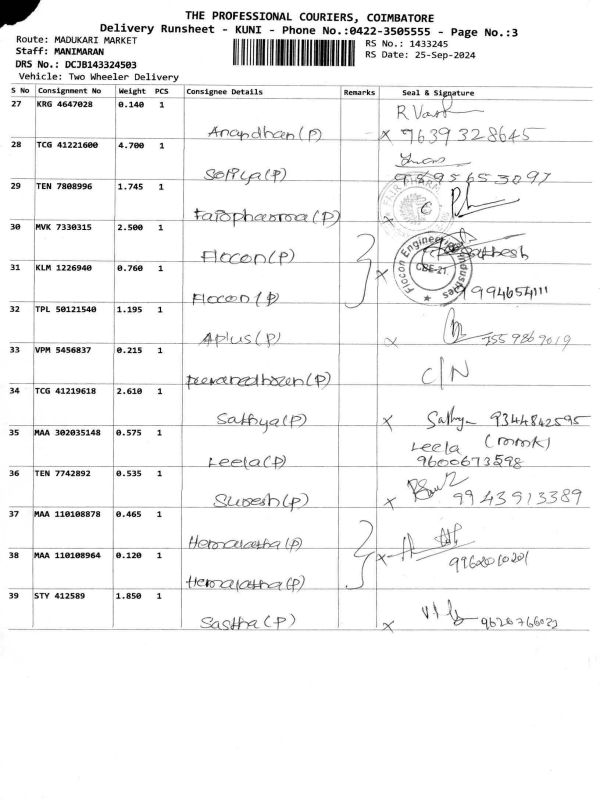 THE PROFESSIONAL COURIERS, COIMBATORE
Delivery Runsheet - KUNI - Phone No.:0422-3505555 - Page No.:3
Route: MADUKARI MARKET
RS No.: 1433245
Staff: MANIMARAN
RS Date: 25-Sep-2024
DRS No.: DCJB143324503
Vehicle: Two Wheeler Delivery
S No Consignment No Weight PCS Consignee Details Remarks Seal & Signature
27 KRG 4647028 0.140 1
Anandhan(P) x 7639328645
28 TCG 41221600 4.700 1
Sofiya(P) 9895653097
29 TEN 7808996 1.745 1
Fairopharma(P) x
30 MVK 7330315 2.500 1
Flocon(P)
Flocon Engineering Industries CBE-21
31 KLM 1226940 0.760 1 x
Flocon(P) 9994654111
32 TPL 50121540 1.195 1
Aplus(P) x 7559869019
33 VPM 5456837 0.215 1
C/N
34 TCG 41219618 2.610 1
Sathya(P) x Sathya 9344842595
35 MAA 302035148 0.575 1 Leela (mmk)
Leela(P) 9600673598
36 TEN 7742892 0.535 1
Suresh(P) x 9943913389
37 MAA 110108878 0.465 1
Hemalatha(P)
38 MAA 110108964 0.120 1 x 9962010201
Hemalatha(P)
39 STY 412589 1.850 1
Sastha(P) x